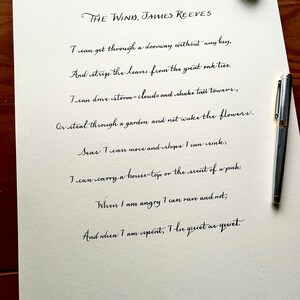 THE WIND, JAMES REEVES
I can get through a doorway without any key,
And strip the leaves from the great oak tree.
I can drive storm-clouds and shake tall towers,
Or steal through a garden and not wake the flowers.
Seas I can move and ships I can sink;
I can carry a house-top or the scent of a pink.
When I am angry I can rave and riot;
And when I am spent, I lie quiet as quiet.